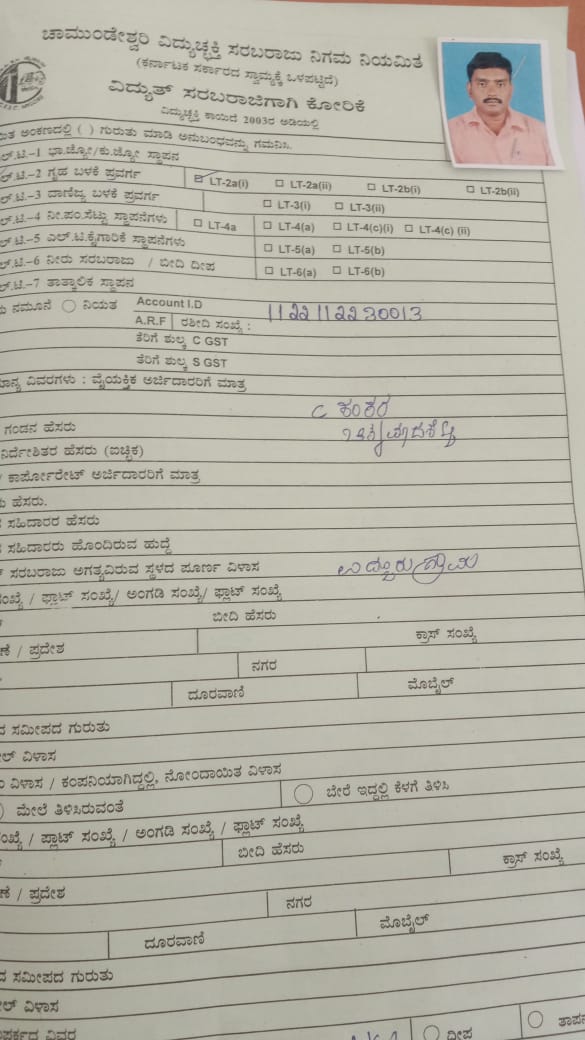 ಚಾಮುಂಡೇಶ್ವರಿ ವಿದ್ಯುಚ್ಛಕ್ತಿ ಸರಬರಾಜು ನಿಗಮ ನಿಯಮಿತ
(ಕರ್ನಾಟಕ ಸರ್ಕಾರದ ಸ್ವಾಮ್ಯಕ್ಕೆ ಒಳಪಟ್ಟಿದೆ)
ವಿದ್ಯುತ್ ಸರಬರಾಜಿಗಾಗಿ ಕೋರಿಕೆ
ವಿದ್ಯುಚ್ಛಕ್ತಿ ಕಾಯಿದೆ 2003ರ ಅಡಿಯಲ್ಲಿ
ಅಂಕಣದಲ್ಲಿ ( ) ಗುರುತು ಮಾಡಿ ಅನುಬಂಧವನ್ನು ಗಮನಿಸಿ.
ಲ್.ಟಿ.–1 ಭಾ.ಜ್ಯೋ/ಕು.ಜ್ಯೋ ಸ್ಥಾಪನ
ಲ್.ಟಿ.–2 ಗೃಹ ಬಳಕೆ ಪ್ರವರ್ಗ LT-2a(i) LT-2a(ii) LT-2b(i) LT-2b(ii)
ಲ್.ಟಿ.–3 ವಾಣಿಜ್ಯ ಬಳಕೆ ಪ್ರವರ್ಗ LT-3(i) LT-3(ii)
ಲ್.ಟಿ.–4 ನೀ.ಪಂ.ಸೆಟ್ಟು ಸ್ಥಾಪನೆಗಳು LT-4a LT-4(a) LT-4(c)(i) LT-4(c) (ii)
ಲ್.ಟಿ.–5 ಎಲ್.ಟಿ.ಕೈಗಾರಿಕೆ ಸ್ಥಾಪನೆಗಳು LT-5(a) LT-5(b)
ಲ್.ಟಿ.–6 ನೀರು ಸರಬರಾಜು / ಬೀದಿ ದೀಪ LT-6(a) LT-6(b)
ಲ್.ಟಿ.–7 ತಾತ್ಕಾಲಿಕ ಸ್ಥಾಪನ
ನಮೂನೆ ನಿಯತ Account I.D 1122112230013
A.R.F ರಶೀದಿ ಸಂಖ್ಯೆ :
ತೆರಿಗೆ ಶುಲ್ಕ C GST
ತೆರಿಗೆ ಶುಲ್ಕ S GST
ವಿವರಗಳು : ವೈಯಕ್ತಿಕ ಅರ್ಜಿದಾರರಿಗೆ ಮಾತ್ರ
C ಶಂಕರ
ಗಂಡನ ಹೆಸರು
ನಿರ್ದೇಶಿತರ ಹೆಸರು (ಐಚ್ಛಿಕ)
/ ಕಾರ್ಪೋರೇಟ್ ಅರ್ಜಿದಾರರಿಗೆ ಮಾತ್ರ
ಹೆಸರು.
ಸಹಿದಾರರ ಹೆಸರು
ಸಹಿದಾರರು ಹೊಂದಿರುವ ಹುದ್ದೆ
ಸರಬರಾಜು ಅಗತ್ಯವಿರುವ ಸ್ಥಳದ ಪೂರ್ಣ ವಿಳಾಸ
ಸಂಖ್ಯೆ / ಫ್ಲಾಟ್ ಸಂಖ್ಯೆ/ ಅಂಗಡಿ ಸಂಖ್ಯೆ/ ಫ್ಲಾಟ್ ಸಂಖ್ಯೆ
ಬೀದಿ ಹೆಸರು
/ ಪ್ರದೇಶ ಕ್ರಾಸ್ ಸಂಖ್ಯೆ
ನಗರ
ದೂರವಾಣಿ ಮೊಬೈಲ್
ಸಮೀಪದ ಗುರುತು
ವಿಳಾಸ
ವಿಳಾಸ / ಕಂಪನಿಯಾಗಿದ್ದಲ್ಲಿ, ನೋಂದಾಯಿತ ವಿಳಾಸ
ಮೇಲೆ ತಿಳಿಸಿರುವಂತೆ ಬೇರೆ ಇದ್ದಲ್ಲಿ ಕೆಳಗೆ ತಿಳಿಸಿ
ಸಂಖ್ಯೆ / ಪ್ಲಾಟ್ ಸಂಖ್ಯೆ / ಅಂಗಡಿ ಸಂಖ್ಯೆ / ಫ್ಲಾಟ್ ಸಂಖ್ಯೆ
ಬೀದಿ ಹೆಸರು
/ ಪ್ರದೇಶ ಕ್ರಾಸ್ ಸಂಖ್ಯೆ
ನಗರ
ದೂರವಾಣಿ ಮೊಬೈಲ್
ಸಮೀಪದ ಗುರುತು
ವಿಳಾಸ
ವಿವರ ದೀಪ